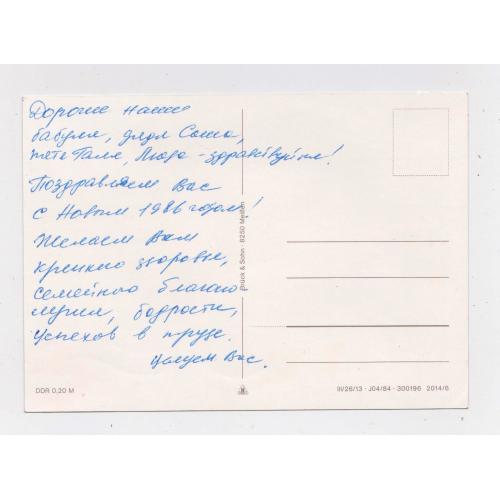 Дорогие наши
бабуля, дядя Саша,
тётя Галя, Люда - здравствуйте!
Поздравляем Вас
с Новым 1986 годом!
Желаем Вам
крепкого здоровья,
семейного благопо
лучия, бодрости,
успехов в труде.
Целуем Вас.
Brück & Sohn · 8250 Meißen
DDR 0,20 M
III/26/13 · J04/84 · 300196 2014/6